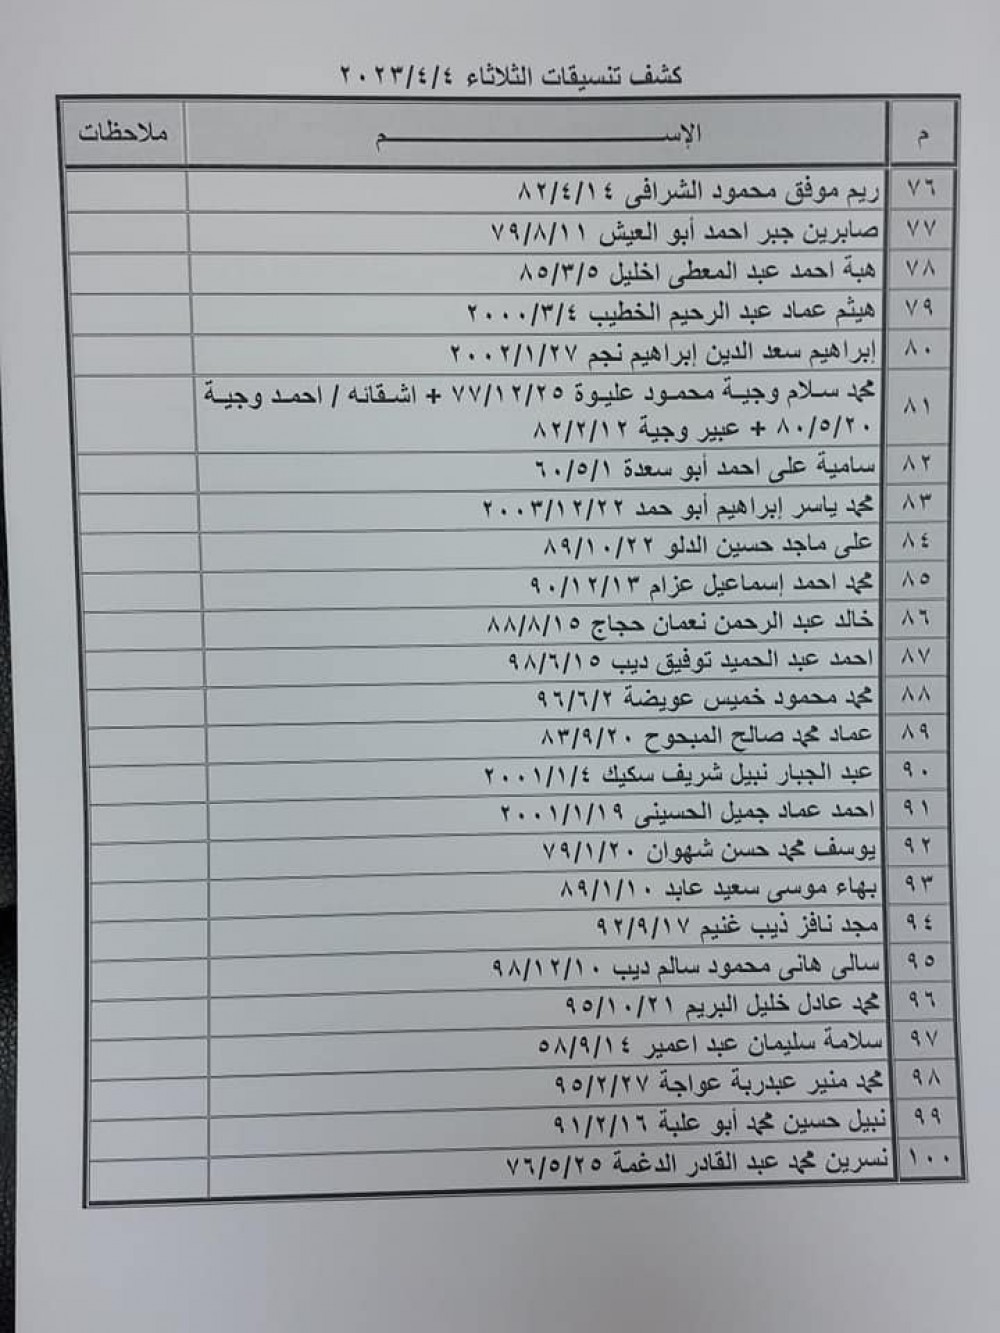 كشف تنسيقات الثلاثاء ٢٠٢٣/٤/٤
م الإســـــــم ملاحظات
٧٦ ريم موفق محمود الشرافى ٨٢/٤/١٤
٧٧ صابرين جبر احمد أبو العيش ٧٩/٨/١١
٧٨ هبة احمد عبد المعطى اخليل ٨٥/٣/٥
٧٩ هيثم عماد عبد الرحيم الخطيب ٢٠٠٠/٣/٤
٨٠ إبراهيم سعد الدين إبراهيم نجم ٢٠٠٢/١/٢٧
٨١ محمد سلام وجية محمود عليوة ٧٧/١٢/٢٥ + اشقائه / احمد وجية
٨٠/٥/٢٠ + عبير وجية ٨٢/٢/١٢
٨٢ سامية على احمد أبو سعدة ٦٠/٥/١
٨٣ محمد ياسر إبراهيم أبو حمد ٢٠٠٣/١٢/٢٢
٨٤ على ماجد حسين الدلو ٨٩/١٠/٢٢
٨٥ محمد احمد إسماعيل عزام ٩٠/١٢/١٣
٨٦ خالد عبد الرحمن نعمان حجاج ٨٨/٨/١٥
٨٧ احمد عبد الحميد توفيق ديب ٩٨/٦/١٥
٨٨ محمد محمود خميس عويضة ٩٦/٦/٢
٨٩ عماد محمد صالح المبحوح ٨٣/٩/٢٠
٩٠ عبد الجبار نبيل شريف سكيك ٢٠٠١/١/٤
٩١ احمد عماد جميل الحسينى ٢٠٠١/١/١٩
٩٢ يوسف محمد حسن شهوان ٧٩/١/٢٠
٩٣ بهاء موسى سعيد عابد ٨٩/١/١٠
٩٤ مجد نافز ذيب غنيم ٩٢/٩/١٧
٩٥ سالى هانى محمود سالم ديب ٩٨/١٢/١٠
٩٦ محمد عادل خليل البريم ٩٥/١٠/٢١
٩٧ سلامة سليمان عبد اعمير ٥٨/٩/١٤
٩٨ محمد منير عبدربة عواجة ٩٥/٢/٢٧
٩٩ نبيل حسين محمد أبو علبة ٩١/٢/١٦
١٠٠ نسرين محمد عبد القادر الدغمة ٧٦/٥/٢٥